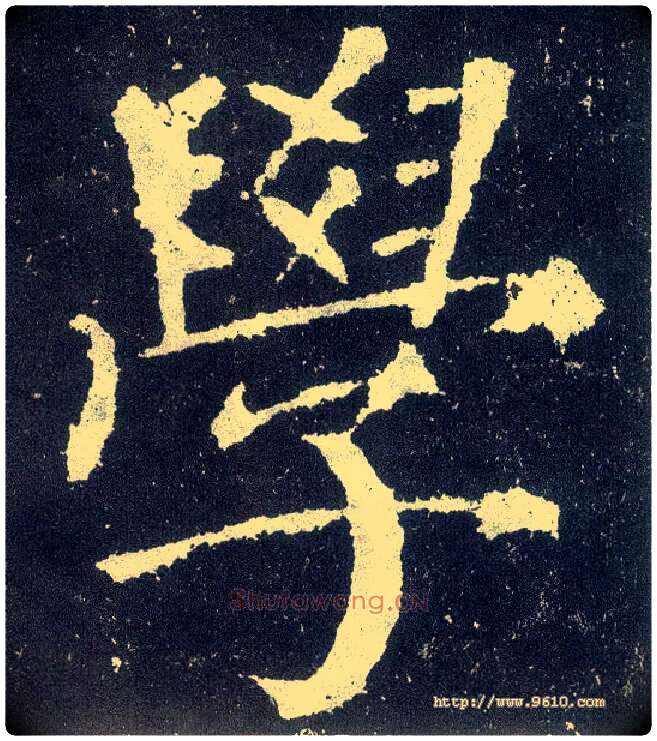 學
Shufawang.CN
http://www.9610.com